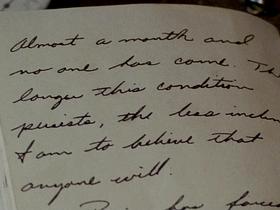 Almost a month and
no one has come. The
longer this condition
persists, the less
I am to believe that
anyone will.